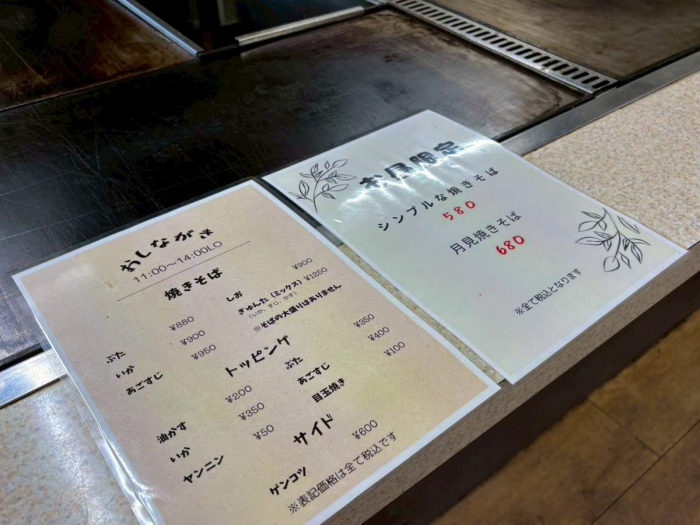 おしながき
11:00〜14:00LO
焼きそば
ぶた ¥880
いか ¥900
あごすじ ¥950
しお ¥900
ぎゅんた（ミックス） ¥1250
（いか、すじ、かす）
※そばの大盛りはありません
トッピング
油かす ¥200
いか ¥350
ヤンニン ¥50
ぶた ¥350
あごすじ ¥400
目玉焼き ¥100
サイド
ゲンコツ ¥600
※表記価格は全て税込です
お昼限定
シンプルな焼きそば
580
月見焼きそば
680
※全て税込となります